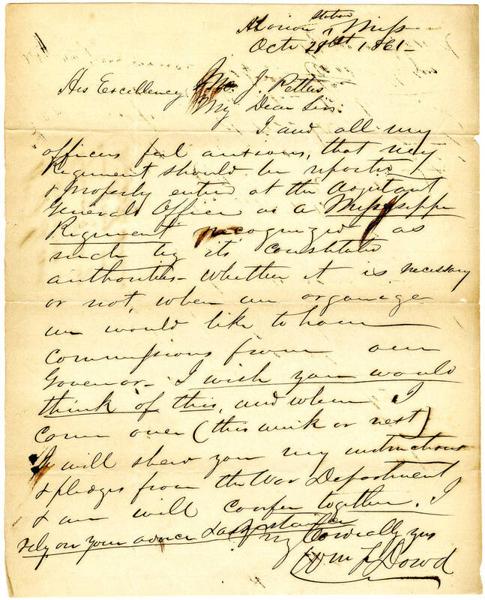 Marion Station Miss
Octr 29th 1861-
His Excellency Jno. J. Pettus
My Dear Sir.
I and all my
officers feel anxious, that my
Regiment should be reported
& properly entered at the Asjutant
Generals Office as a Mississippi
Regiment recognized as
such by its constituted
authorities - whether it is necessary
or not, when we organize
we would like to have
commissions from our
Governor - I wish you would
think of this, and when I
come over (this week or next)
I will shew you my instructions
& pledges from the War Department
& we will confer together. I
rely on your advice &
Very Cordially yrs
Wm F Dowd